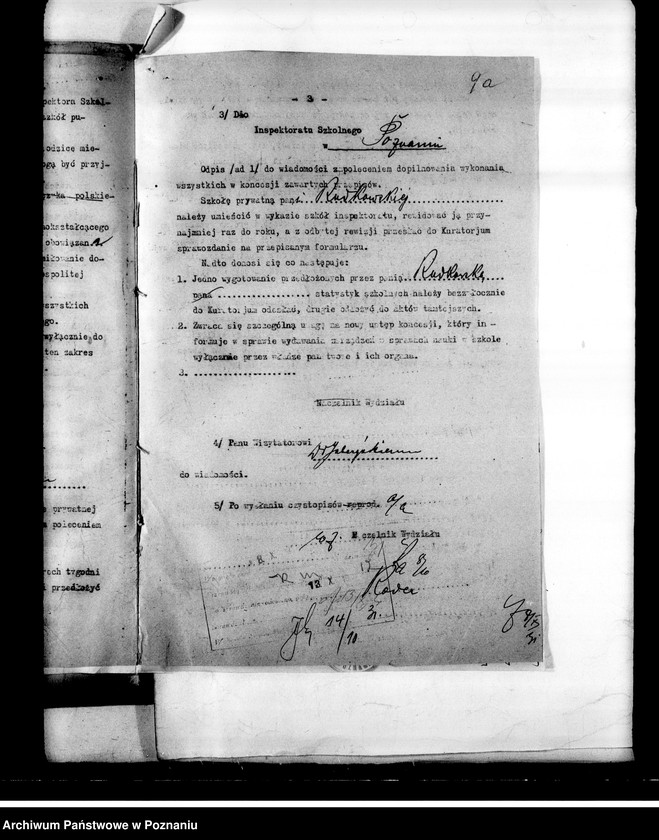 4a
- 3 -
3/ Do
Inspektoratu Szkolnego
w Poznaniu
Odpis /ad 1/ do wiadomości z poleceniem dopilnowania wykonania
wszystkich w koncesji zawartych przepisów.
Szkołę prywatną pani Radkowskiej
należy umieścić w wykazie szkół inspektoratu, rewidować ją przy-
najmniej raz do roku, a z odbytej rewizji przesłać do Kuratorjum
sprawozdanie na przepisanym formularzu.
Nadto donosi się co następuje:
1. Jedno wygotowanie przedłożonych przez panią Radkowską
pana ................ statystyk szkolnych należy bezzwłocznie
do Kuratorjum odesłać, drugie odłożyć do aktów tamtejszych.
2. Zwraca się szczególną uwagę na nowy ustęp koncesji, który in-
formuje w sprawie wydawania zarządzeń w sprawach nauki w szkole
wyłącznie przez władze państwowe i ich organa.
3. ....................
Naczelnik Wydziału
4/ Panu Wizytatorowi
do wiadomości.
5/ Po wysłaniu czystopisów reprod. a/a
Naczelnik Wydziału
8 X
13 X
14/10
31
pektora Szkol-
szkół pu-
odzice mie-
ogą być przyj-
języka polskie-
dokształcącego
obowiązani
spolitej
szystkich
go.
wyłącznie do
ten zakres
prywatnej
poleceniem
rech tygodni
i przedłożyć
Archiwum Państwowe w Poznaniu